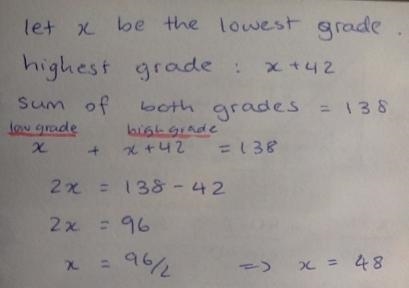 let x be the lowest grade.
highest grade : x+42
sum of both grades = 138
low grade high grade
x + x+42 = 138
2x = 138 - 42
2x = 96
x = 96/2 => x = 48